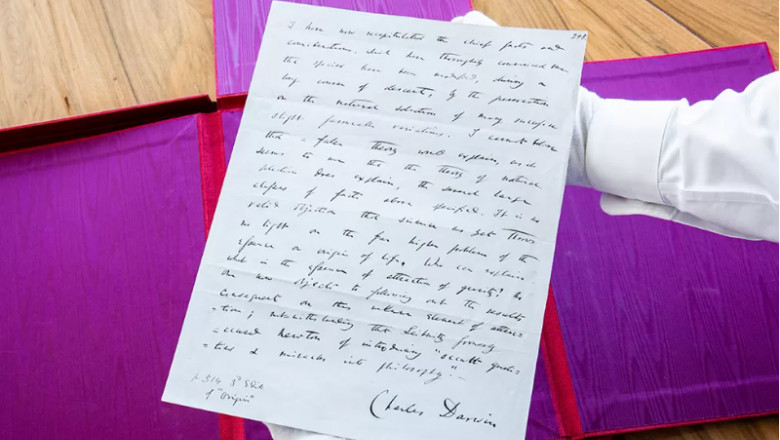 248
I have now recapitulated the chief facts and
considerations, which have thoroughly convinced me
the species have been modified, during a
long course of descent, by the preservation
or the natural selection of many successive
slight favourable variations. I cannot believe
that a false theory would explain, as it
seems to me that the theory of natural
selection does explain, the several large
classes of facts above specified. It is no
valid objection that science as yet throws
no light on the far higher problem of the
essence or origin of life. Who can explain
what is the essence of attraction of gravity? No
one now objects to following out the results
consequent on this unknown element of attrac
-tion; notwithstanding that Leibnitz formerly
accused Newton of introducing "occult quali
-ties & miracles into philosophy".—
p. 514 3d Edit
of "Origin"
Charles Darwin